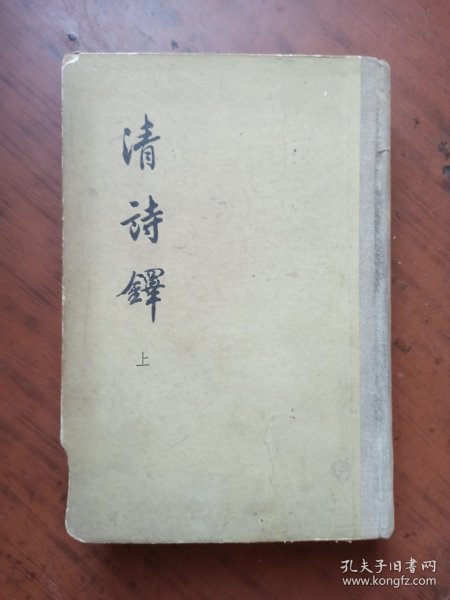 清詩鐸
上
孔夫子旧书网
www.kongfz.com